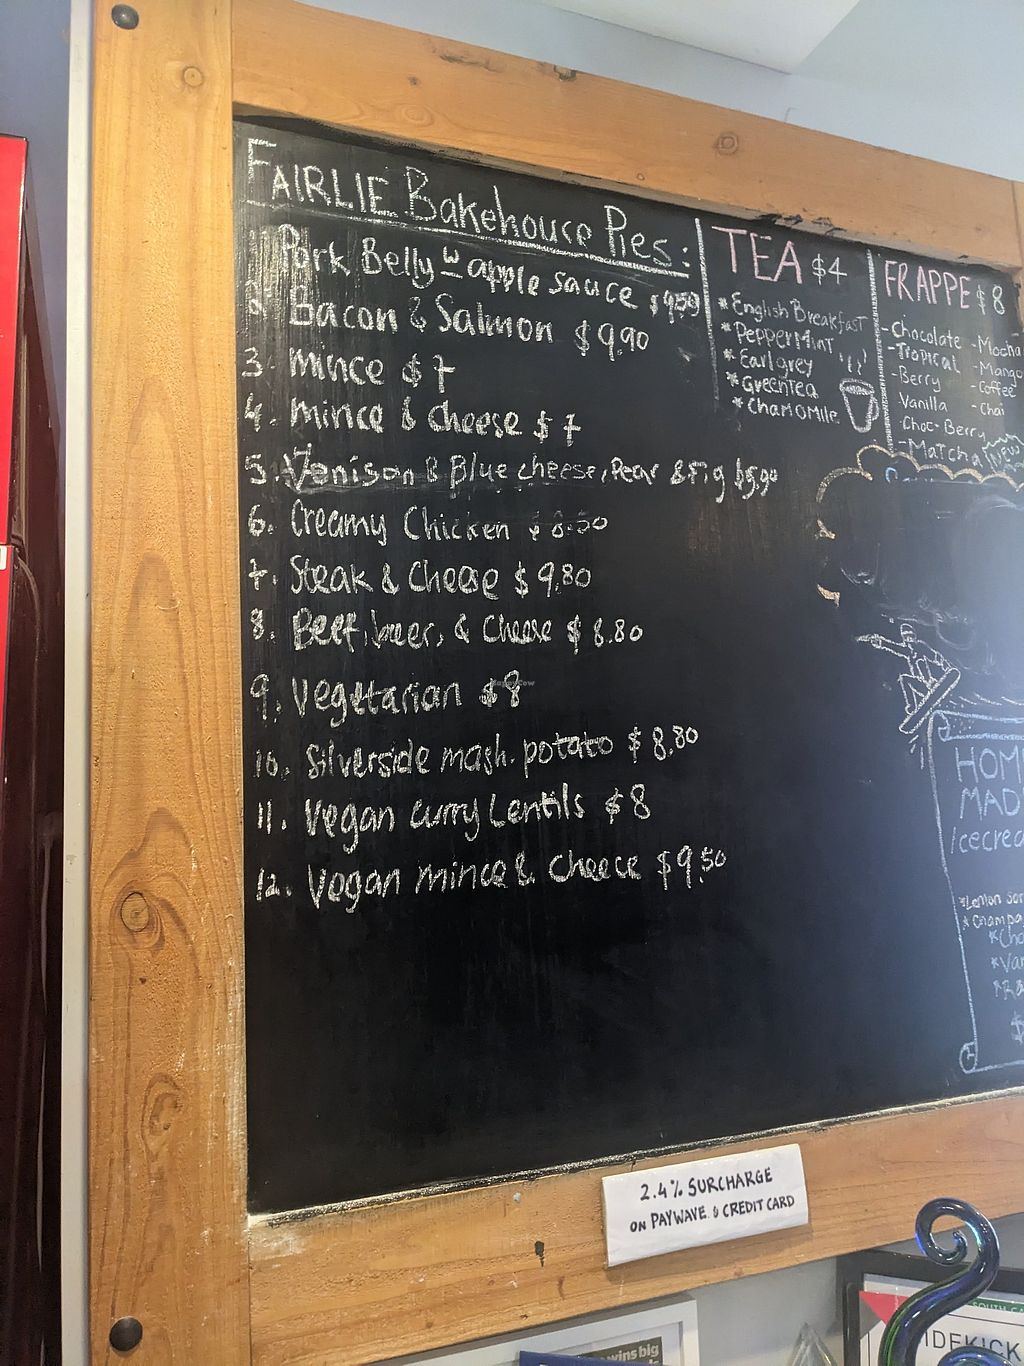 FAIRLIE Bakehouce Pies:
1. Pork Belly w apple sauce $9.50
2. Bacon & Salmon $9.90
3. mince $7
4. mince & cheese $7
5. Venison & Blue cheese, Pear & Fig $9.90
6. Creamy Chicken $8.50
7. Steak & Cheese $9.80
8. Beef, beer, & Cheese $8.80
9. Vegetarian $8
10. Silverside mash. potato $8.80
11. Vegan curry Lentils $8
12. Vegan mince & cheece $9.50
TEA $4
* English Breakfast
* PepperMint
* Earl grey
* Green Tea
* Chamomile
FRAPPE $8
- Chocolate - Mocha
- Tropical - Mango
- Berry - Coffee
Vanilla - Chai
Choc-Berry
- Matcha NEW
HOM
MAD
Icecrea
* Lemon Sor
* Champa
* Cho
* Van
$
2.4% SURCHARGE
ON PAYWAVE & CREDIT CARD
wins big
SOUTH CA
IDEKICK